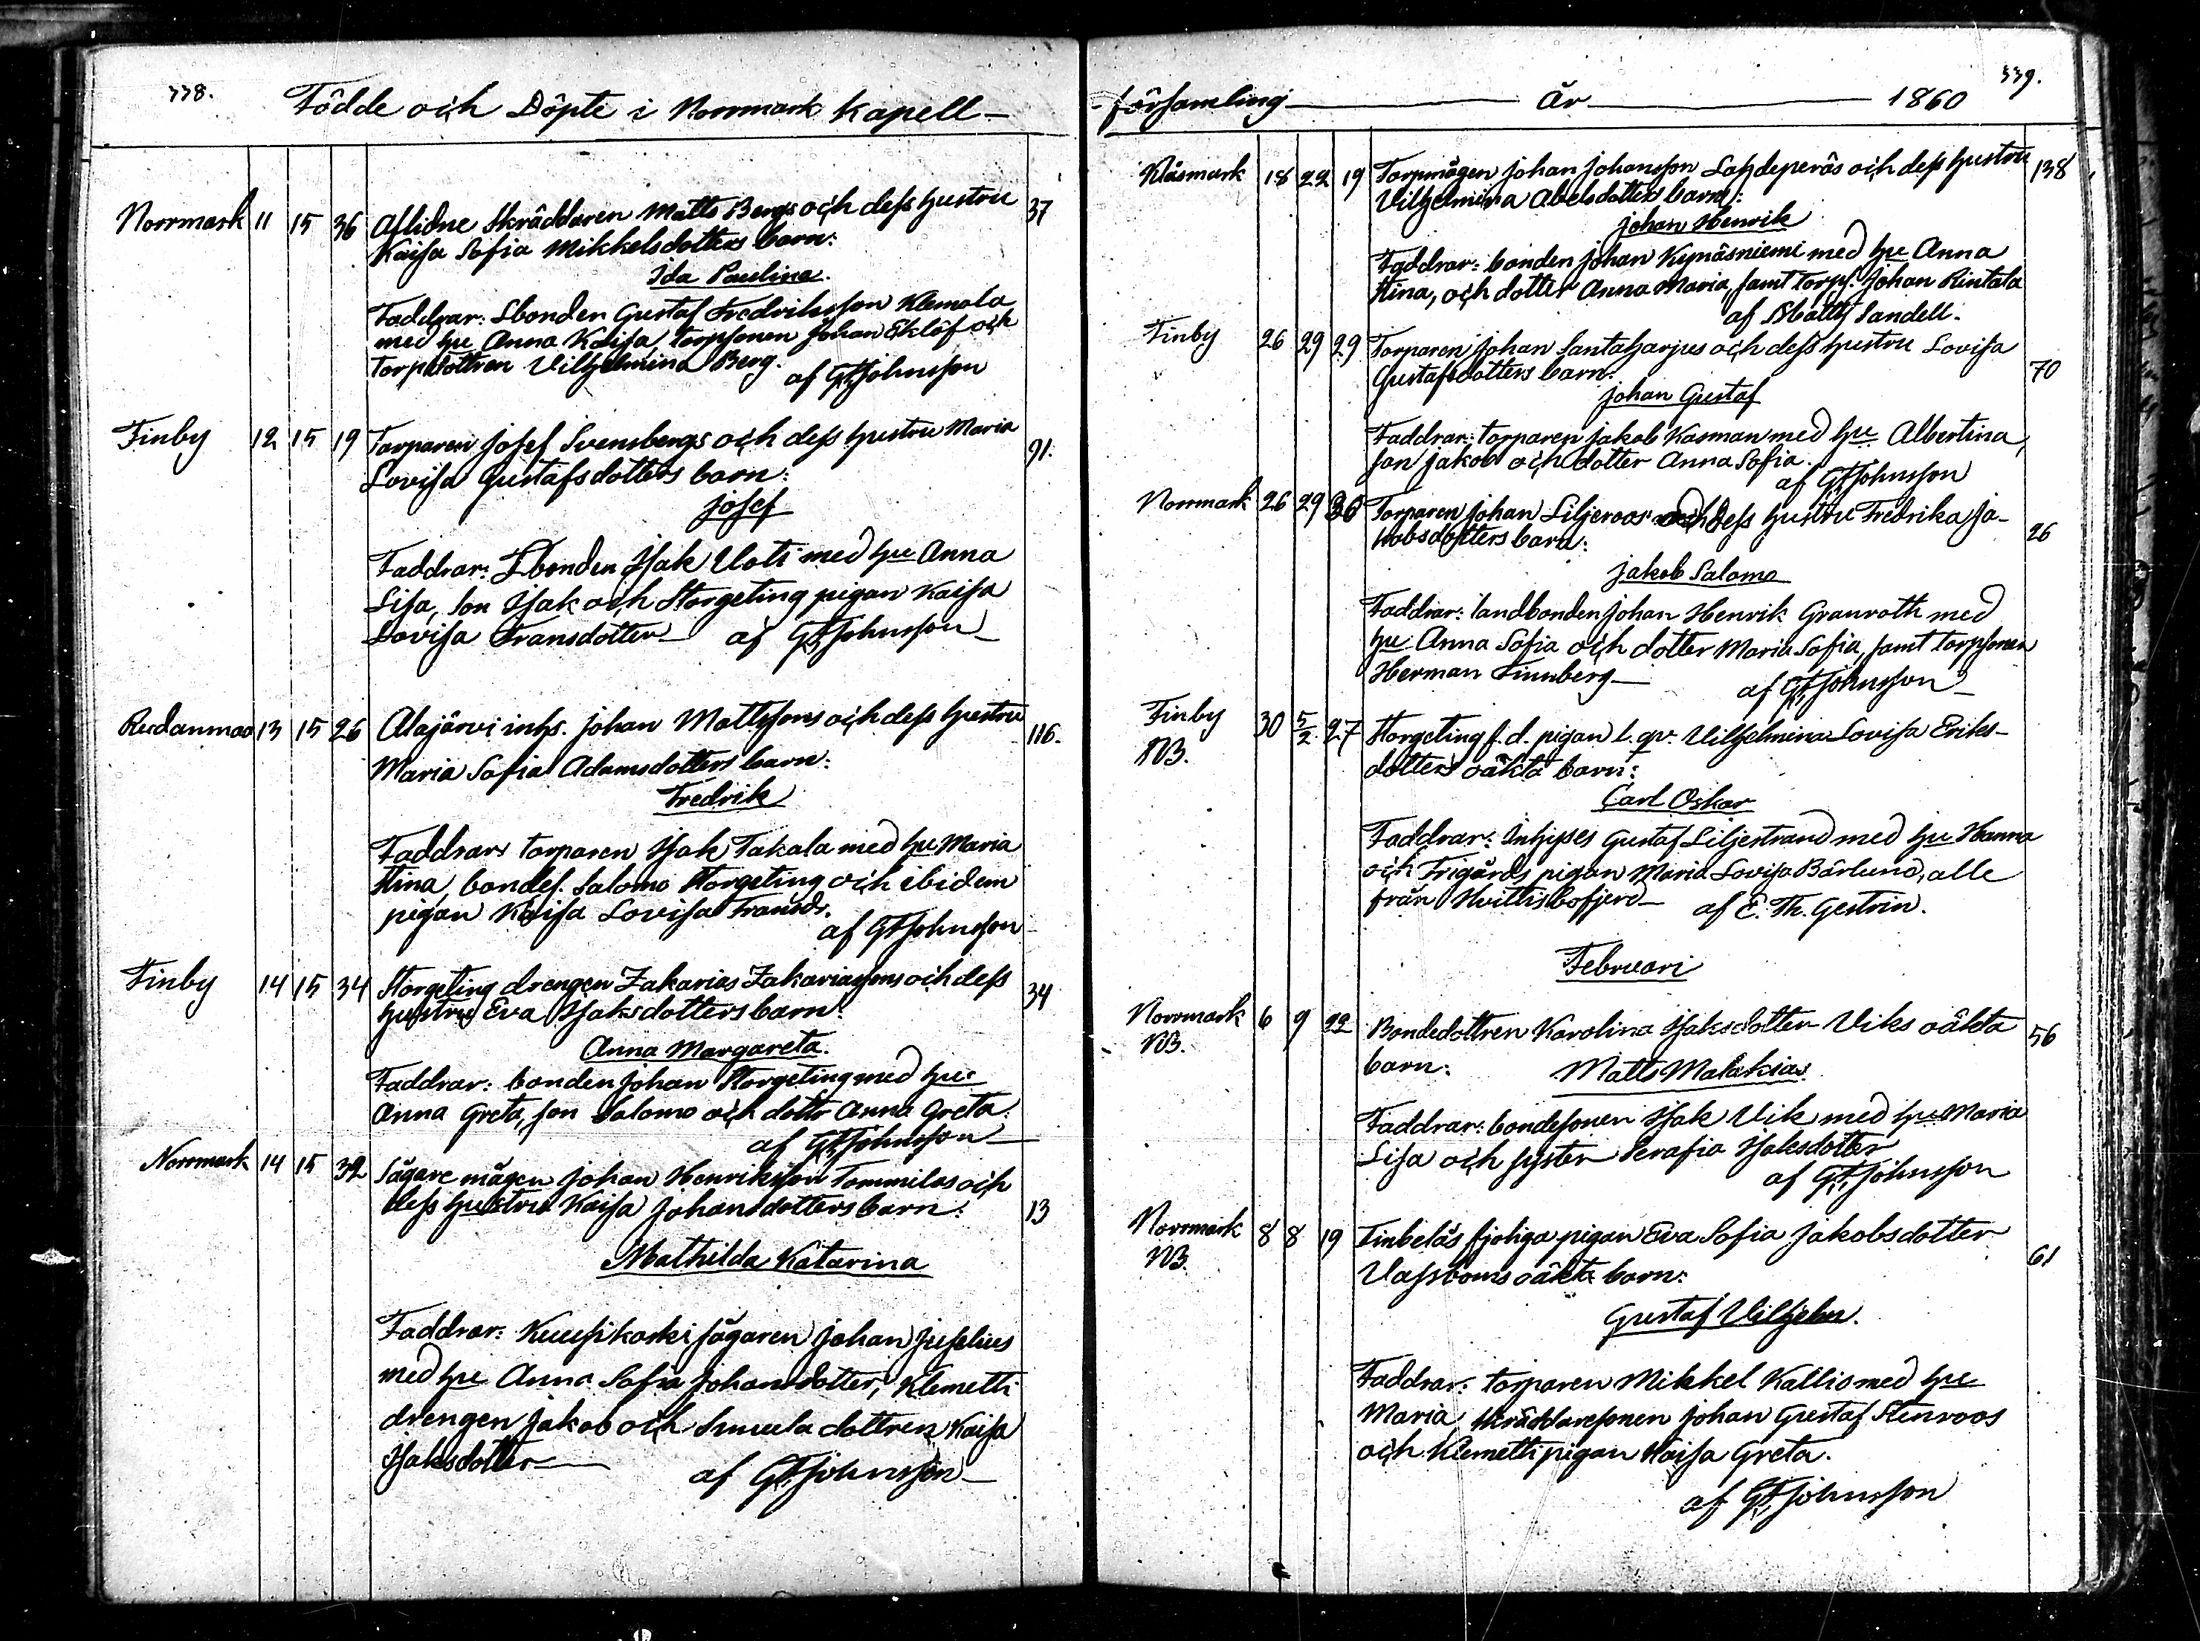 338.
Födde och Döpte i Norrmark Kapell-
Norrmark 11 15 36 Aflidne Skräddaren Matts Bergs och dess hustru 37
Kaisa Sofia Mikkelsdotters barn:
Ida Paulina.
Faddrar: Lbonden Gustaf Fredriksson Klemola
med hu Anna Kaisa, torpsonen Johan Eklöf och
torpdottren Vilhelmina Berg.
af G.F. Johnsson
Finby 12 15 19 Torparen Josef Svensbergs och dess hustru Maria 91.
Lovisa Gustafsdotters barn:
Josef
Faddrar: Lbonden Isak Uoti med hu Anna
Lisa, son Isak och Storgeting pigan Kaisa
Lovisa Fransdotter
af G.F. Johnsson
Rudanmaa 13 15 26 Alajärvi inhs. Johan Mattssons och dess hustru 116.
Maria Sofia Adamsdotters barn:
Fredrik
Faddrar torparen Isak Takala med hu Maria
Stina, bondes. Salomo Storgeting och ibidem
pigan Kaisa Lovisa Fransdr.
af G.F. Johnsson
Finby 14 15 34 Storgeting drengen Zakarias Zakariassons och dess 34
hustru Eva Isaksdotters barn:
Anna Margareta.
Faddrar: bonden Johan Storgeting med hu
Anna Greta, son Salomo och dottr Anna Greta.
af G.F. Johnsson
Norrmark 14 15 32 Sågare mågen Johan Henriksson Tommilas och
dess hustru Kaisa Johansdotters barn: 13
Mathilda Katarina
Faddrar: Kuusikoski sågaren Johan Juselius
med hu Anna Sofia Johansdotter, Klemetti
drengen Jakob och Smeela dottren Kaisa
Isaksdotter
af G.F. Johnsson
339.
-församling år 1860
Klåsmark 18 22 19 Torpmågen Johan Johansson Lahdeperäs och dess hustru 138
Vilhelmina Abelsdotters barn:
Johan Henrik
Faddrar: bonden Johan Kynäsniemi med hu Anna
Stina, och dotter Anna Maria, samt torps. Johan Rintala
af Matts Sandell.
Finby 26 29 29 Torparen Johan Santaharjus och dess hustru Lovisa
Gustafsdotters barn: 70
Johan Gustaf
Faddrar: torparen Jakob Kasman med hu Albertina,
son Jakob och dotter Anna Sofia.
af G.F. Johnsson
Norrmark 26 29 30 Torparen Johan Liljeroos och dess hustru Fredrika Ja-
kobsdotters barn: 26
Jakob Salomo
Faddrar: landbonden Johan Henrik Granroth med
hu Anna Sofia och dotter Maria Sofia, samt torpsonen
Herman Finnberg
af G.F. Johnsson
Finby 30 5/2. 27 Storgeting f. d. pigan l. qv. Vilhelmina Lovisa Eriks-
NB. dotters oäkta barn:
Carl Oskar
Faddrar: Inhyses Gustaf Liljestrand med hu Hanna
och Frigårds pigan Maria Lovisa Bärlund, alle
från Hvittisbofjerd
af E. Th. Gestrin.
Februari
Norrmark 6 9 22 Bondedottren Karolina Isaksdotter Viks oäkta 56
NB. barn:
Matts Malakias
Faddrar: bondesonen Isak Vik med hu Maria
Lisa och syster Serafia Isaksdotter
af G.F. Johnsson
Norrmark 8 8 19 Finbelås sjöliga pigan Eva Sofia Jakobsdotter 61
NB. Vassboms oäkta barn:
Gustaf Vilhelm.
Faddrar: torparen Mikkel Kallio med hu
Maria, skräddaresonen Johan Gustaf Stenroos
och Klemetti pigan Kaisa Greta.
af G.F. Johnsson